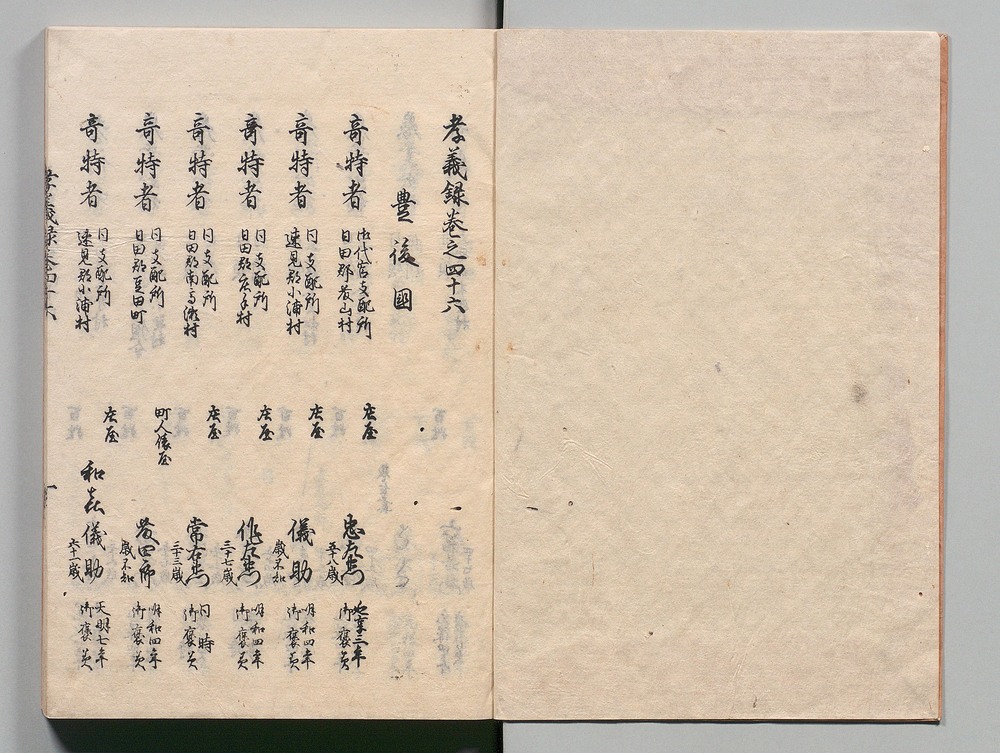 孝義録巻之四十六
豊後國
竒特者
御代官支配所
日田郡
庄屋
忠左衛門
五十八歳
延享三年
御褒美
竒特者
同支配所
速見郡小浦村
庄屋
儀助
歳不知
明和四年
御褒美
竒特者
同支配所
日田郡庄手村
庄屋
作左衛門
三十七歳
明和四年
御褒美
竒特者
同支配所
日田郡南高瀬村
庄屋
常右衛門
三十三歳
同時
御褒美
竒特者
同支配所
日田郡豆田町
町人俵屋
歳不知
明和四年
御褒美
竒特者
同支配所
速見郡小浦村
庄屋
儀助
六十一歳
天明七年
御褒美
孝義録巻四十六
一